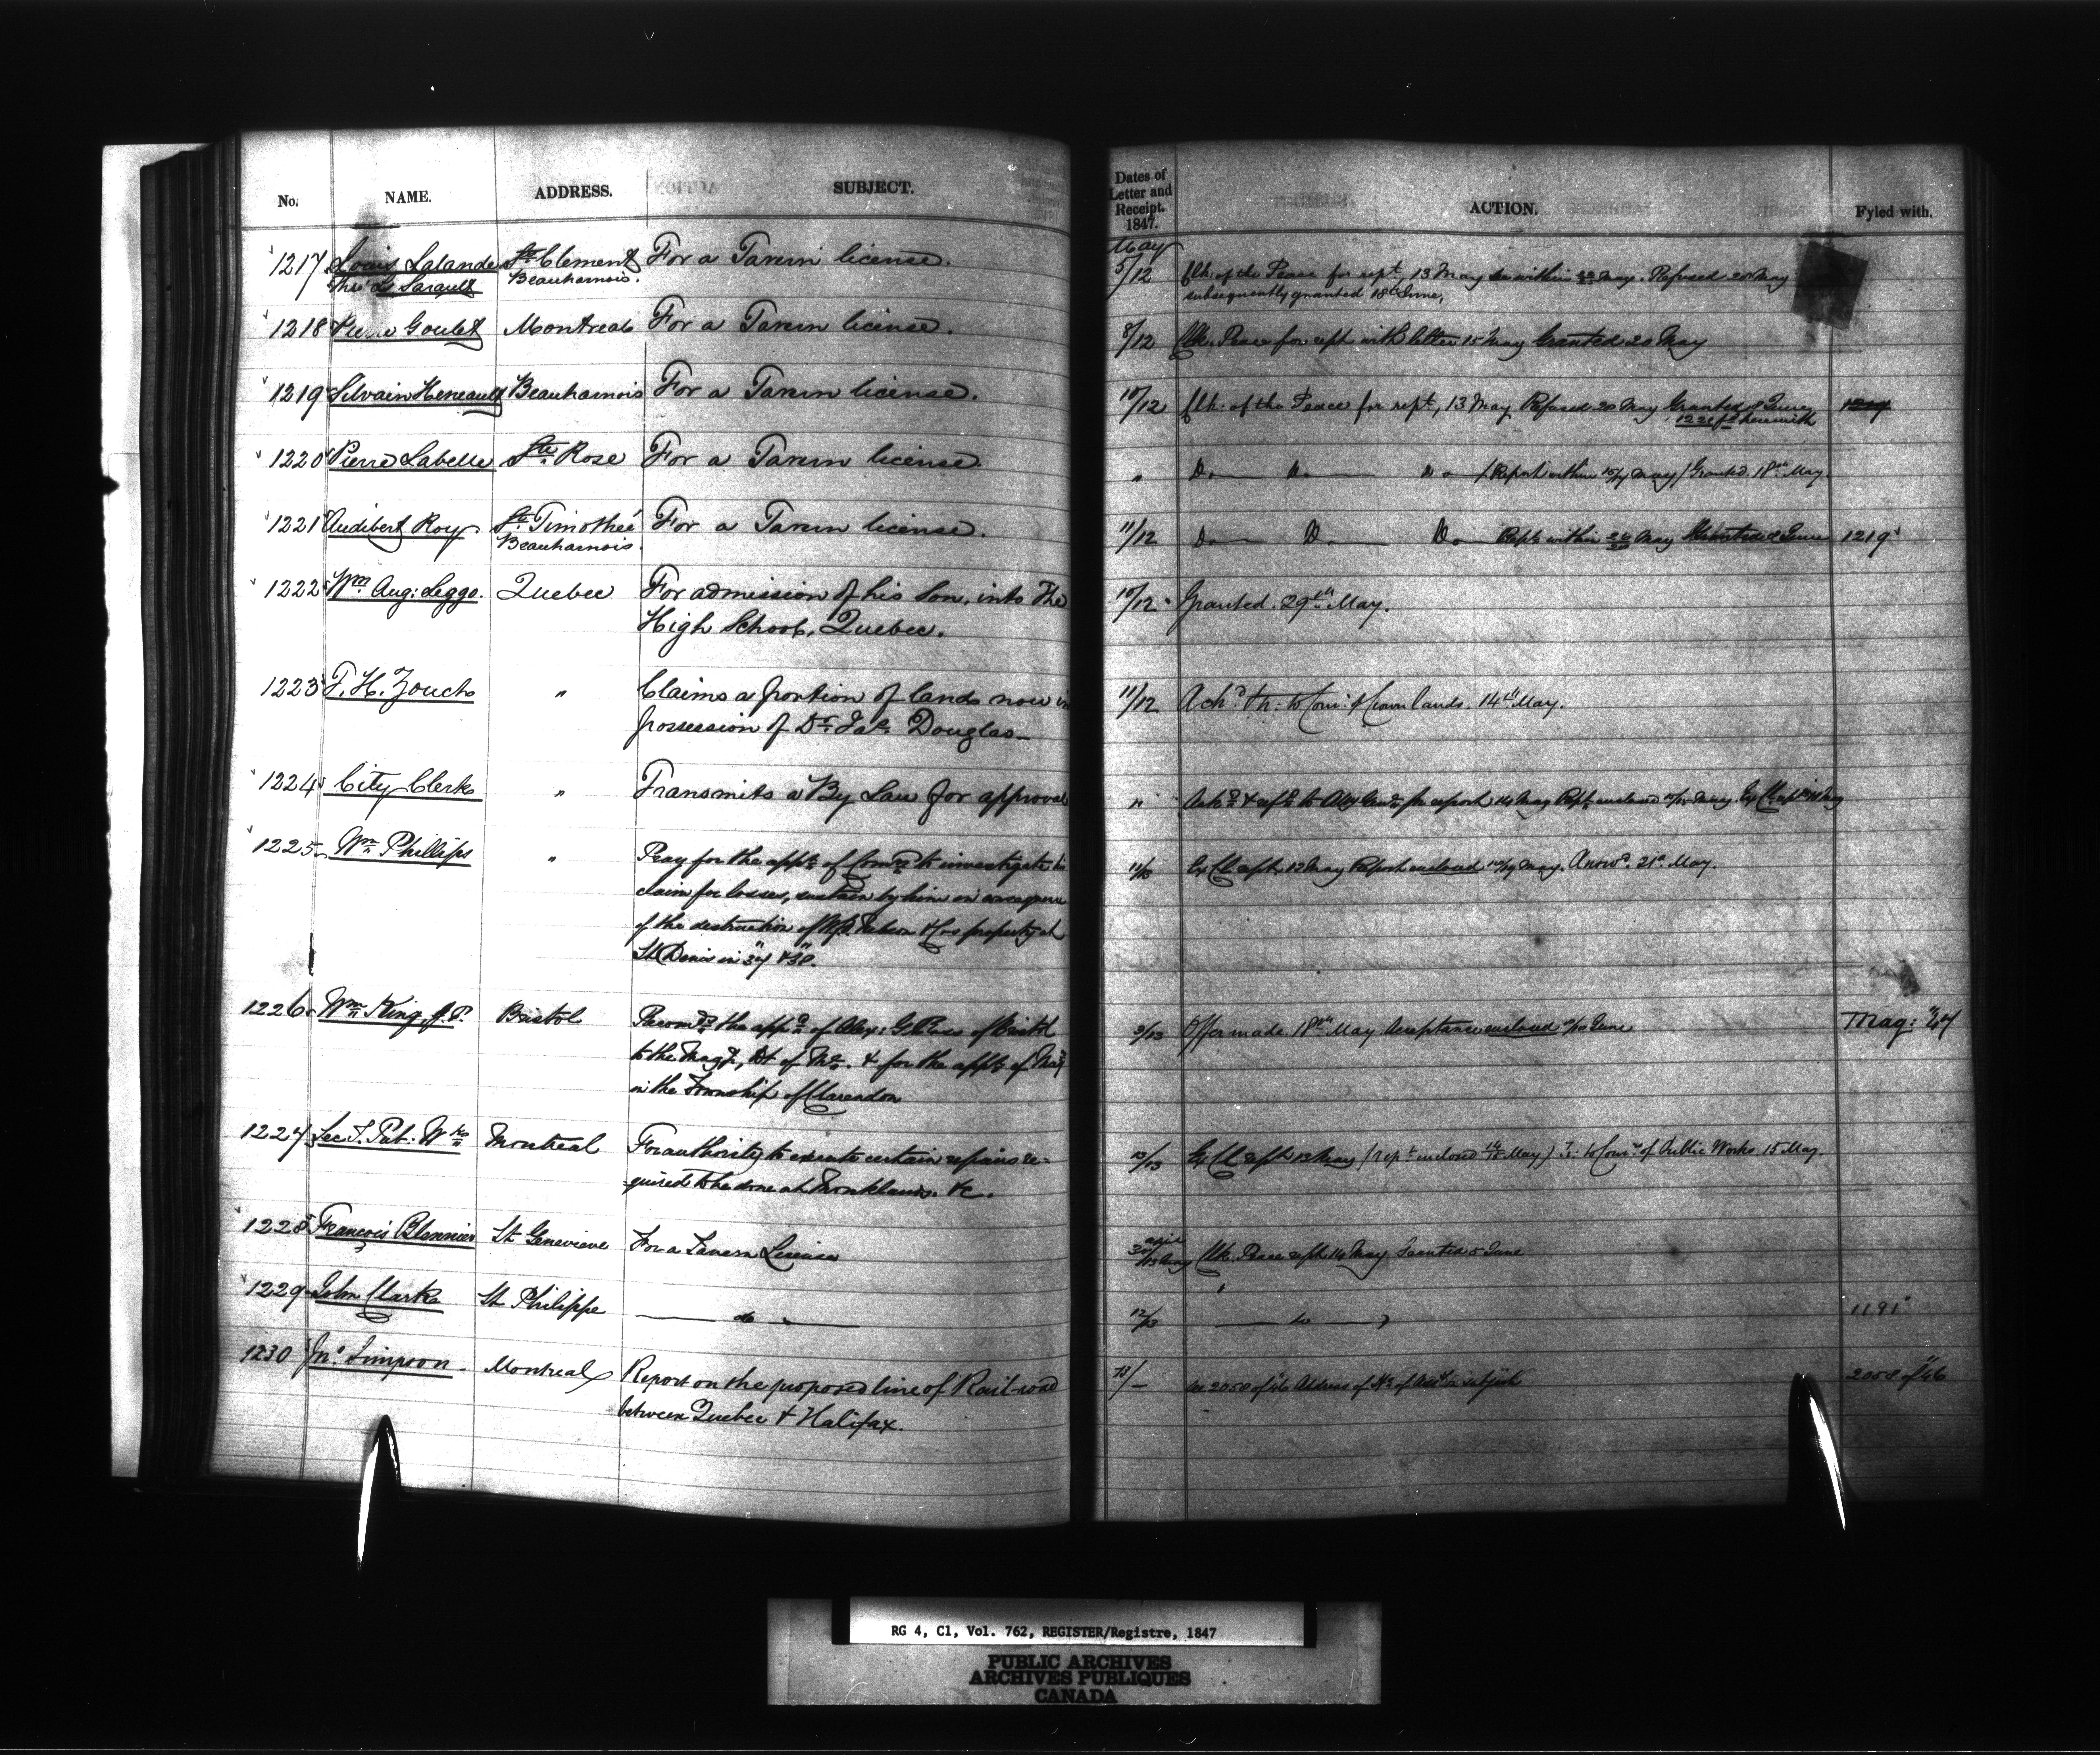 No. NAME. ADDRESS. SUBJECT.
Dates of Letter and Receipt. 1847. ACTION. Fyled with.
May
1217 Louis Lalande St. Clement For a Tavern license. 5/12 Clk: of the Peace for rept, 13 May within May. Refused 20 May
Beauharnois. subsequently granted 18th June,
1218 Pierre Goulet Montreal For a Tavern license. 8/12 Clk. Peace for rept with letter 15 May Granted 20 May
1219 Silvain Heneault Beauharnois For a Tavern license. 10/12 Clk: of the Peace for rept, 13 May Refused 20 May Granted 8 June
herewith
1220 Pierre Labelle Ste. Rose For a Tavern license. " Do Do Do (Report within May) Granted. 18th May.
1221 Audibert Roy. St. Timotheé For a Tavern license. 11/12 Do Do Do Rept within May June 1219
Beauharnois.
1222 Wm Aug: Leggo. Quebec For admission of his Son, into The 10/12 Granted. 29th May.
High School, Quebec.
1223 F. H. Zouch " Claims a portion of lands now in 11/12 Ackd. Th: to Comr: of Crown lands. 14th May.
possession of Dr. Jas. Douglas
1224 City Clerk " Transmits a By Law for approval " Ackd & refd to Atty Genl for report 14 May Rept enclosed May. Ex Cl rept
1225 Wm Phillips " Pray for the appt of Comrs to investigate his Ex Cl rept 12 May Report enclosed May. Answd. 21st May.
claim for losses, sustain by him in consequence
of the destruction of Nelson & Co's property at
St Denis in "37 & 38".
1226 Wm King, J.P. Bristol Recomds the appt of Alex: of Bristol 3/13 Offer made 18th May Acceptance enclosed June Mag: "47
to the Magy, Dt of M. & for the appt of Mag
in the Township of Clarendon
1227 Sec. Pub: Wks Montreal For authority to execute certain repairs re= 13/13 Ex Cl rept 13 May (rept enclosed May) to Comrs of Public Works 15 May.
quired to be done at Monklands. &c.
1228 François St Genevieve For a Tavern License April Clk. Peace rept 14 May Granted 5 June
1229 John Clarke St Philippe do " 12/13 do 1191
1230 Jno Simpson Montreal Report on the proposed line of Rail-road 13/– 2058 of 46 Address of on subject 2058 of "46
between Quebec & Halifax.
RG 4, C1, Vol. 762, REGISTER/Registre, 1847
PUBLIC ARCHIVES
ARCHIVES PUBLIQUES
CANADA